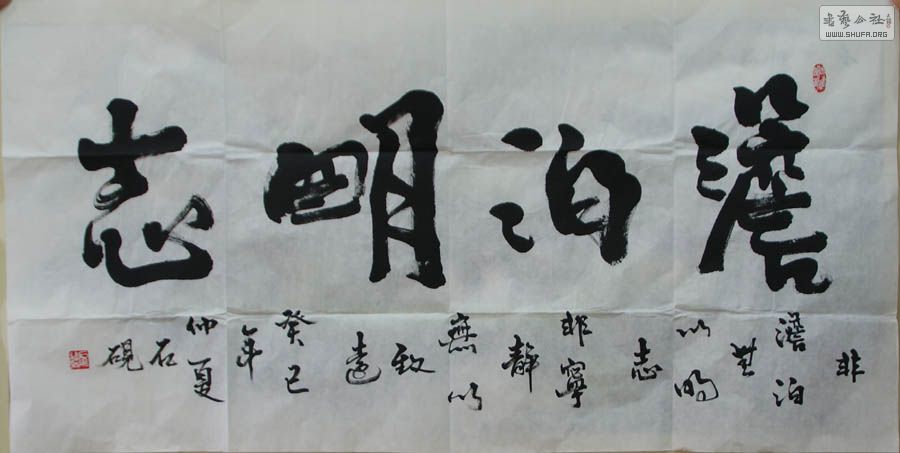 澹泊明志
非
澹泊
無
以明
志
非寧
靜
無以
致
遠
癸巳
年
仲夏
石
硯
书艺公社
WWW.SHUFA.ORG